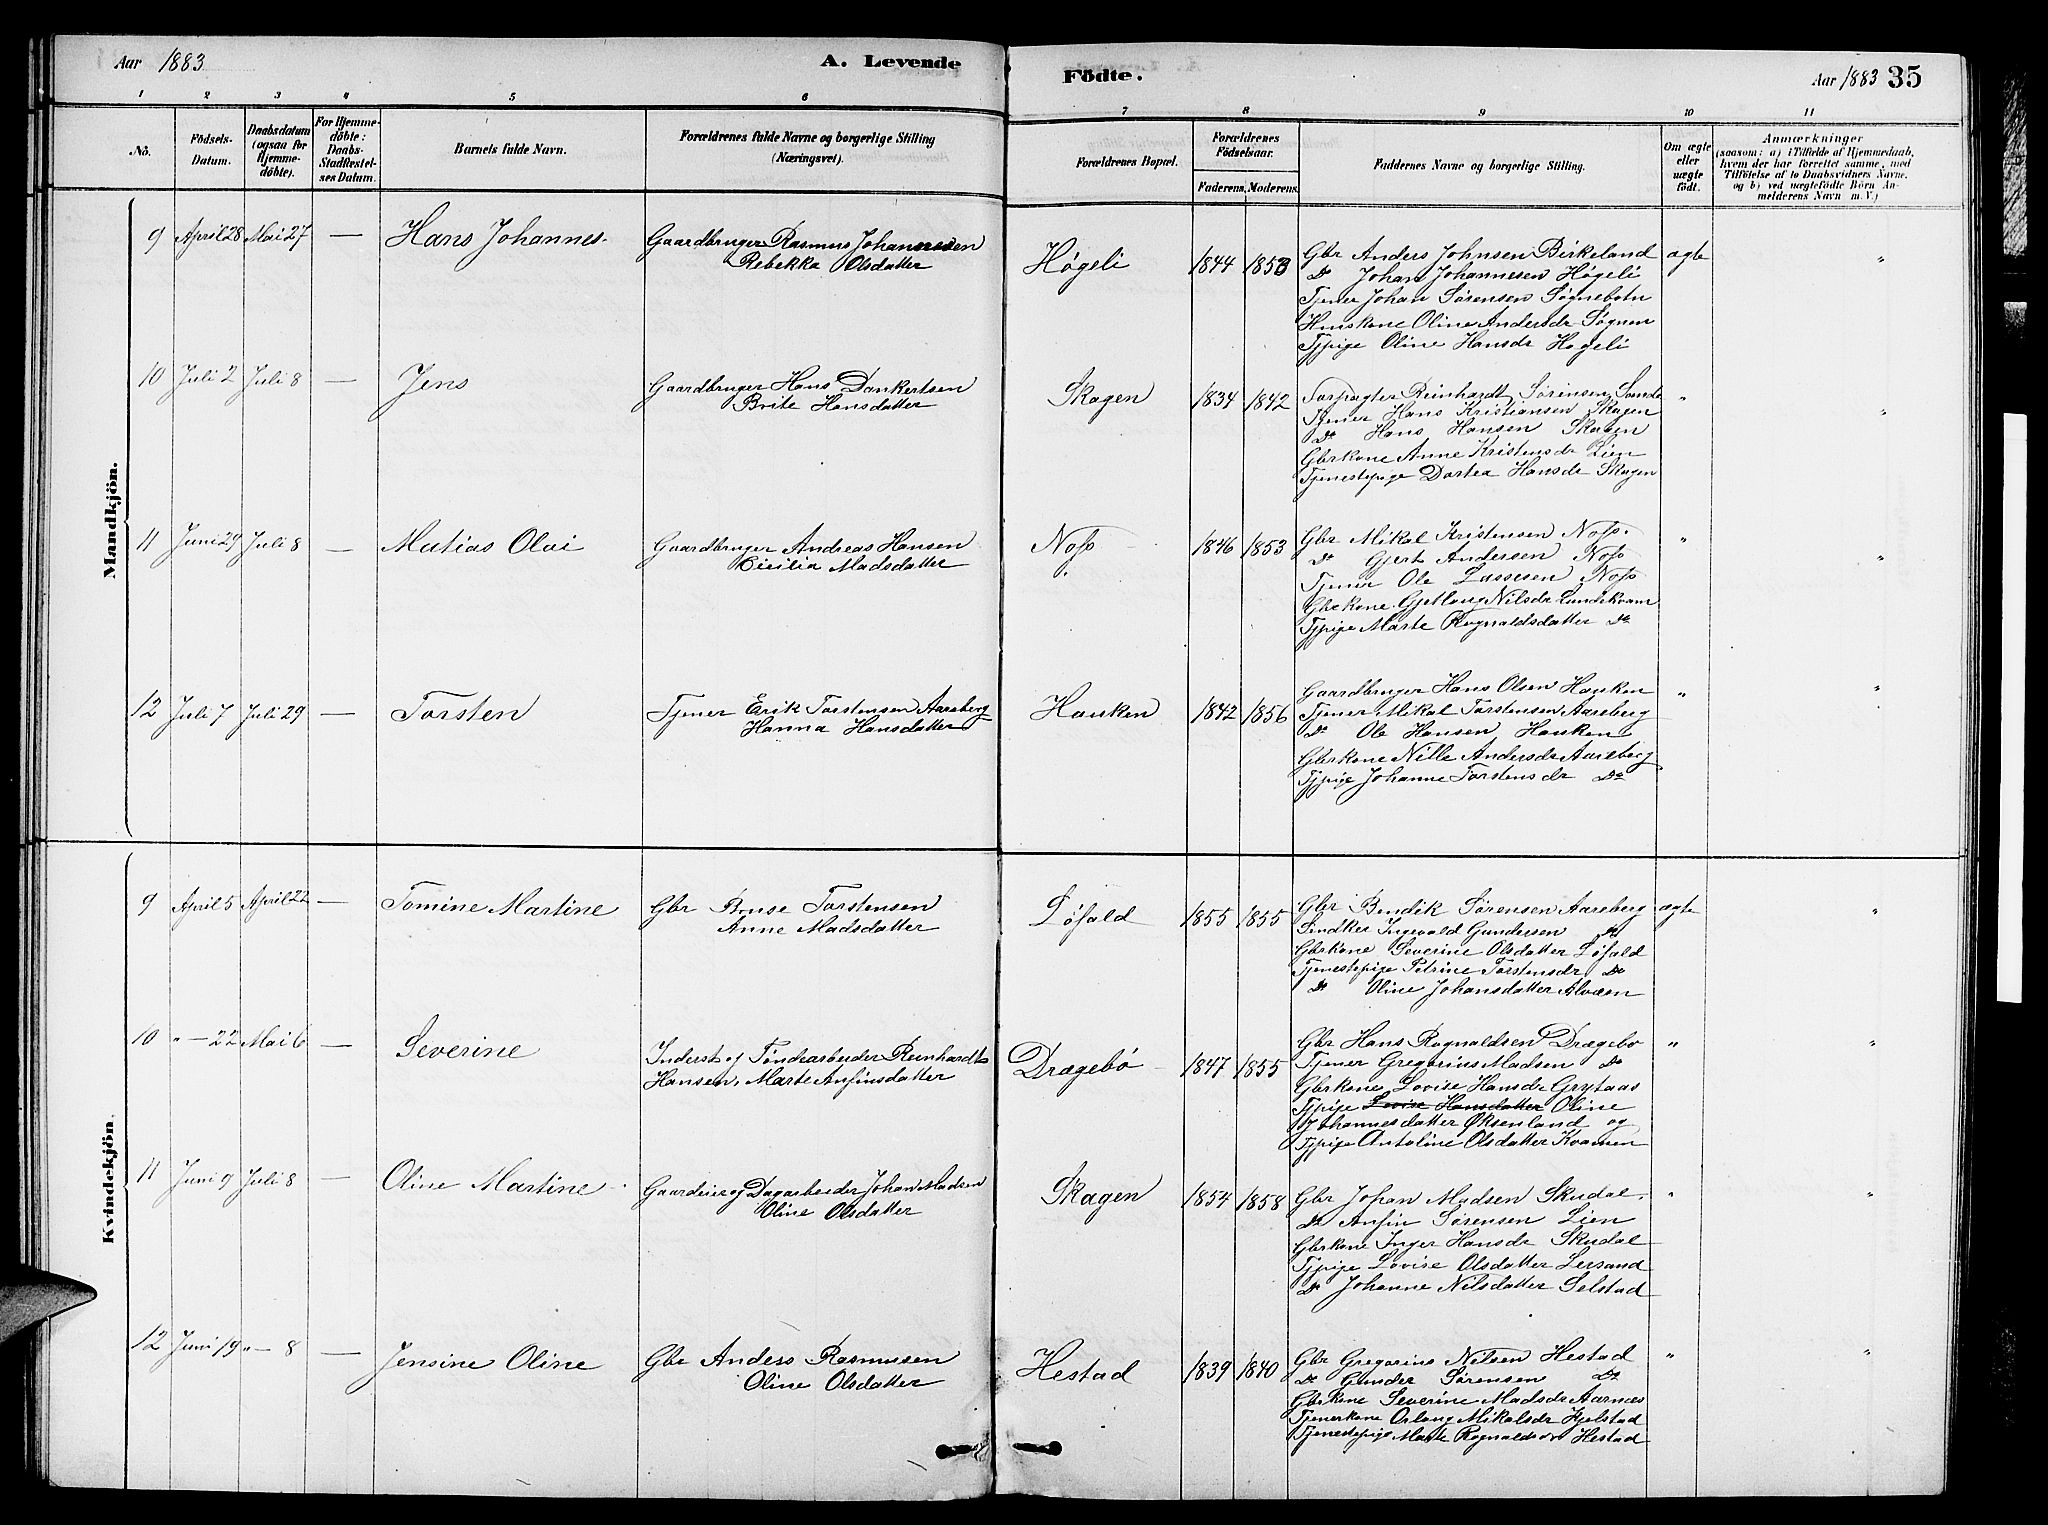 Aar 1883
A. Levende
Födte.
Aar 1883 35
1 2 3 4 5 6 7 8 9 10 11
No.
Födsels-
Datum.
Daabsdatum
(ogsaa for
Hjemme-
döbte).
For Hjemme-
döbte:
Daabs-
Stadfæstel-
ses Datum.
Barnets fulde Navn.
Forældrenes fulde Navne og borgerlige Stilling
(Næringsvei).
Forældrenes Bopæl.
Forældrenes
Födselsaar.
Faderens. Moderens.
Faddernes Navne og borgerlige Stilling.
Om ægte
eller
uægte
födt.
Anmærkninger
(saasom: a) i Tilfælde af Hjemmedaab,
hvem der har forrettet samme, med
Tilföielse af to Daabsvidners Navne.
og b) ved uægtefödte Börn An-
melderens Navn m.V.)
Mandkjön.
9 April 28 Mai 27 — Hans Johannes.
Gaardbruger Rasmus Johannesen
Rebekka Olsdatter
Høgeli 1844 1853
Gbr Anders Johnsen Birkeland
Do Johan Johannesen Høgeli
Tjener Johan Sørensen Søgnebotn
Huuskone Oline Andersdr Søgnen
Tjpige Oline Hansdr Høgeli
ægte "
10 Juli 2 Juli 8 — Jens
Gaardbruger Hans Dankertsen
Brite Hansdatter
Skagen 1834 1842
Forpagter Reinhardt Sørensen Sande
Tjener Hans Kristiansen Skagen
Do Hans Hansen Skagen
Gbrkone Anne Kristensdr Lien
Tjenestepige Dortea Hansdr Skagen
" "
11 Juni 29 Juli 8 — Matias Olai
Gaardbruger Andreas Hansen
Cicilia Madsdatter
Noss 1846 1853
Gbr Mikal Kristensen Noss.
Do Gjert Andersen Noss
Tjener Ole Lassesen Noss
Gbrkone Gjetlaug Nilsdr Lundekvam
Tjpige Marte Ragnaldsdatter Do
" "
12 Juli 7 Juli 29 — Torsten
Tjener Erik Torstensen Aareberg
Hanna Hansdatter
Hauken 1842 1856
Gaardbruger Hans Olsen Hauken
Tjener Mikal Torstensen Aareberg
Do Ole Hansen Hauken
Gbrkone Nille Andersdr Aareberg
Tjpige Johanne Torstensdr Do
" "
Kvindekjön.
9 April 5 April 22 — Tomine Martine
Gbr Bruse Torstensen
Anne Madsdatter
Løfald 1855 1855
Gbr Bendik Sørensen Aareberg
Ingevald Gundersen Do
Gbrkone Severine Olsdatter Løfald
Tjenestepige Petrine Torstensdr Do
Do Oline Johansdatter Alværen
ægte "
10 " — 22 Mai 6 — Severine
Inderst og Tøndearbeider Reinhardt
Hansen, Marte Anfinsdatter
Drægebø 1847 1855
Gbr Hans Ragnaldsen Drægebø
Tjener Gregorius Madsen Do
Gbrkone Lovise Hansdr Grytaas
Tjpige Lovise Hansdatter Oline
Johannesdatter Øksenland og
Tjpige Antoline Olsdatter Kvamen
" "
11 Juni 9 Juli 8 — Oline Martine
Gaardeier og Dagarbeider Johan Madsen
Oline Olsdatter
Skagen 1854 1858
Gbr Johan Madsen Skudal.
Do Anfin Sørensen Lien
Gbrkone Inger Hansdr Skudal
Tjpige Lovise Olsdatter Lersand
Do Johanne Nilsdatter Selstad
" "
12 Juni 19 " — 8 — Jensine Oline
Gbr Anders Rasmusen
Oline Olsdatter
Hestad 1839 1840
Gbr Gregorius Nilsen Hestad
Do Gunder Sørensen Do
Gbrkone Severine Madsdr Aarnæs
Tjenerkone Orlaug Mikalsdr Hjelstad
Tjenestepige Marte Ragnaldsdr Hestad
" "